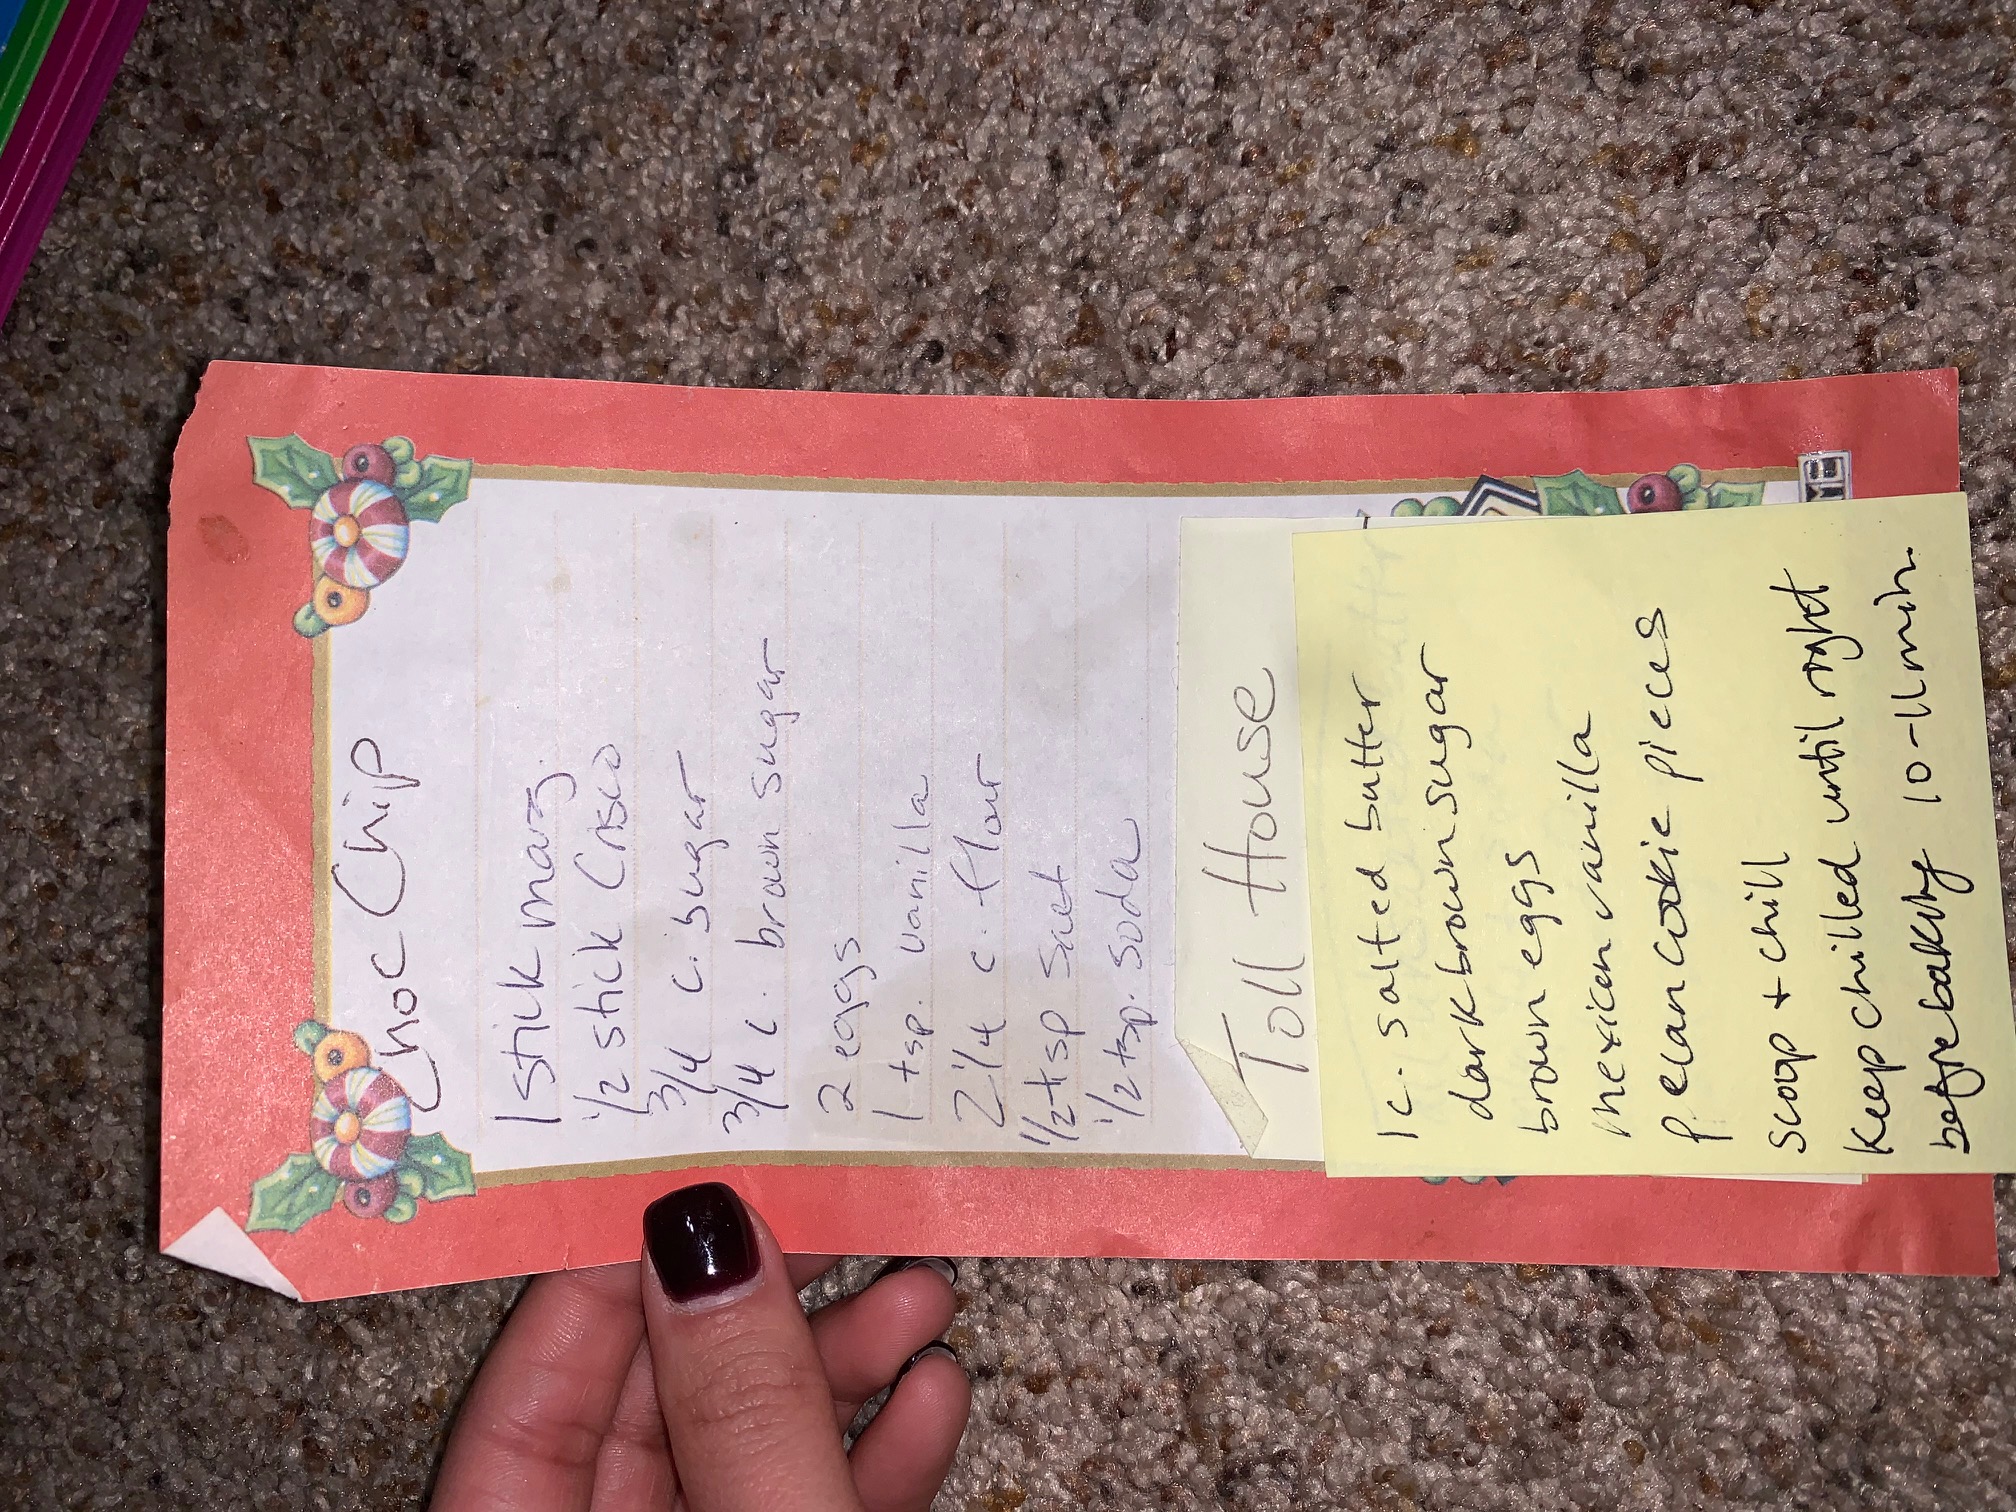 Choc Chip
1 stick marg.
1/2 stick Crisco
3/4 c. sugar
3/4 c. brown sugar
2 eggs
1 tsp. vanilla
2 1/4 c. flour
1/2 tsp salt
1/2 tsp. soda
Toll House
1 c. salted butter
dark brown sugar
brown eggs
mexican vanilla
pecan cookie pieces
scoop + chill
Keep chilled until right
before baking 10-11 min.
ME